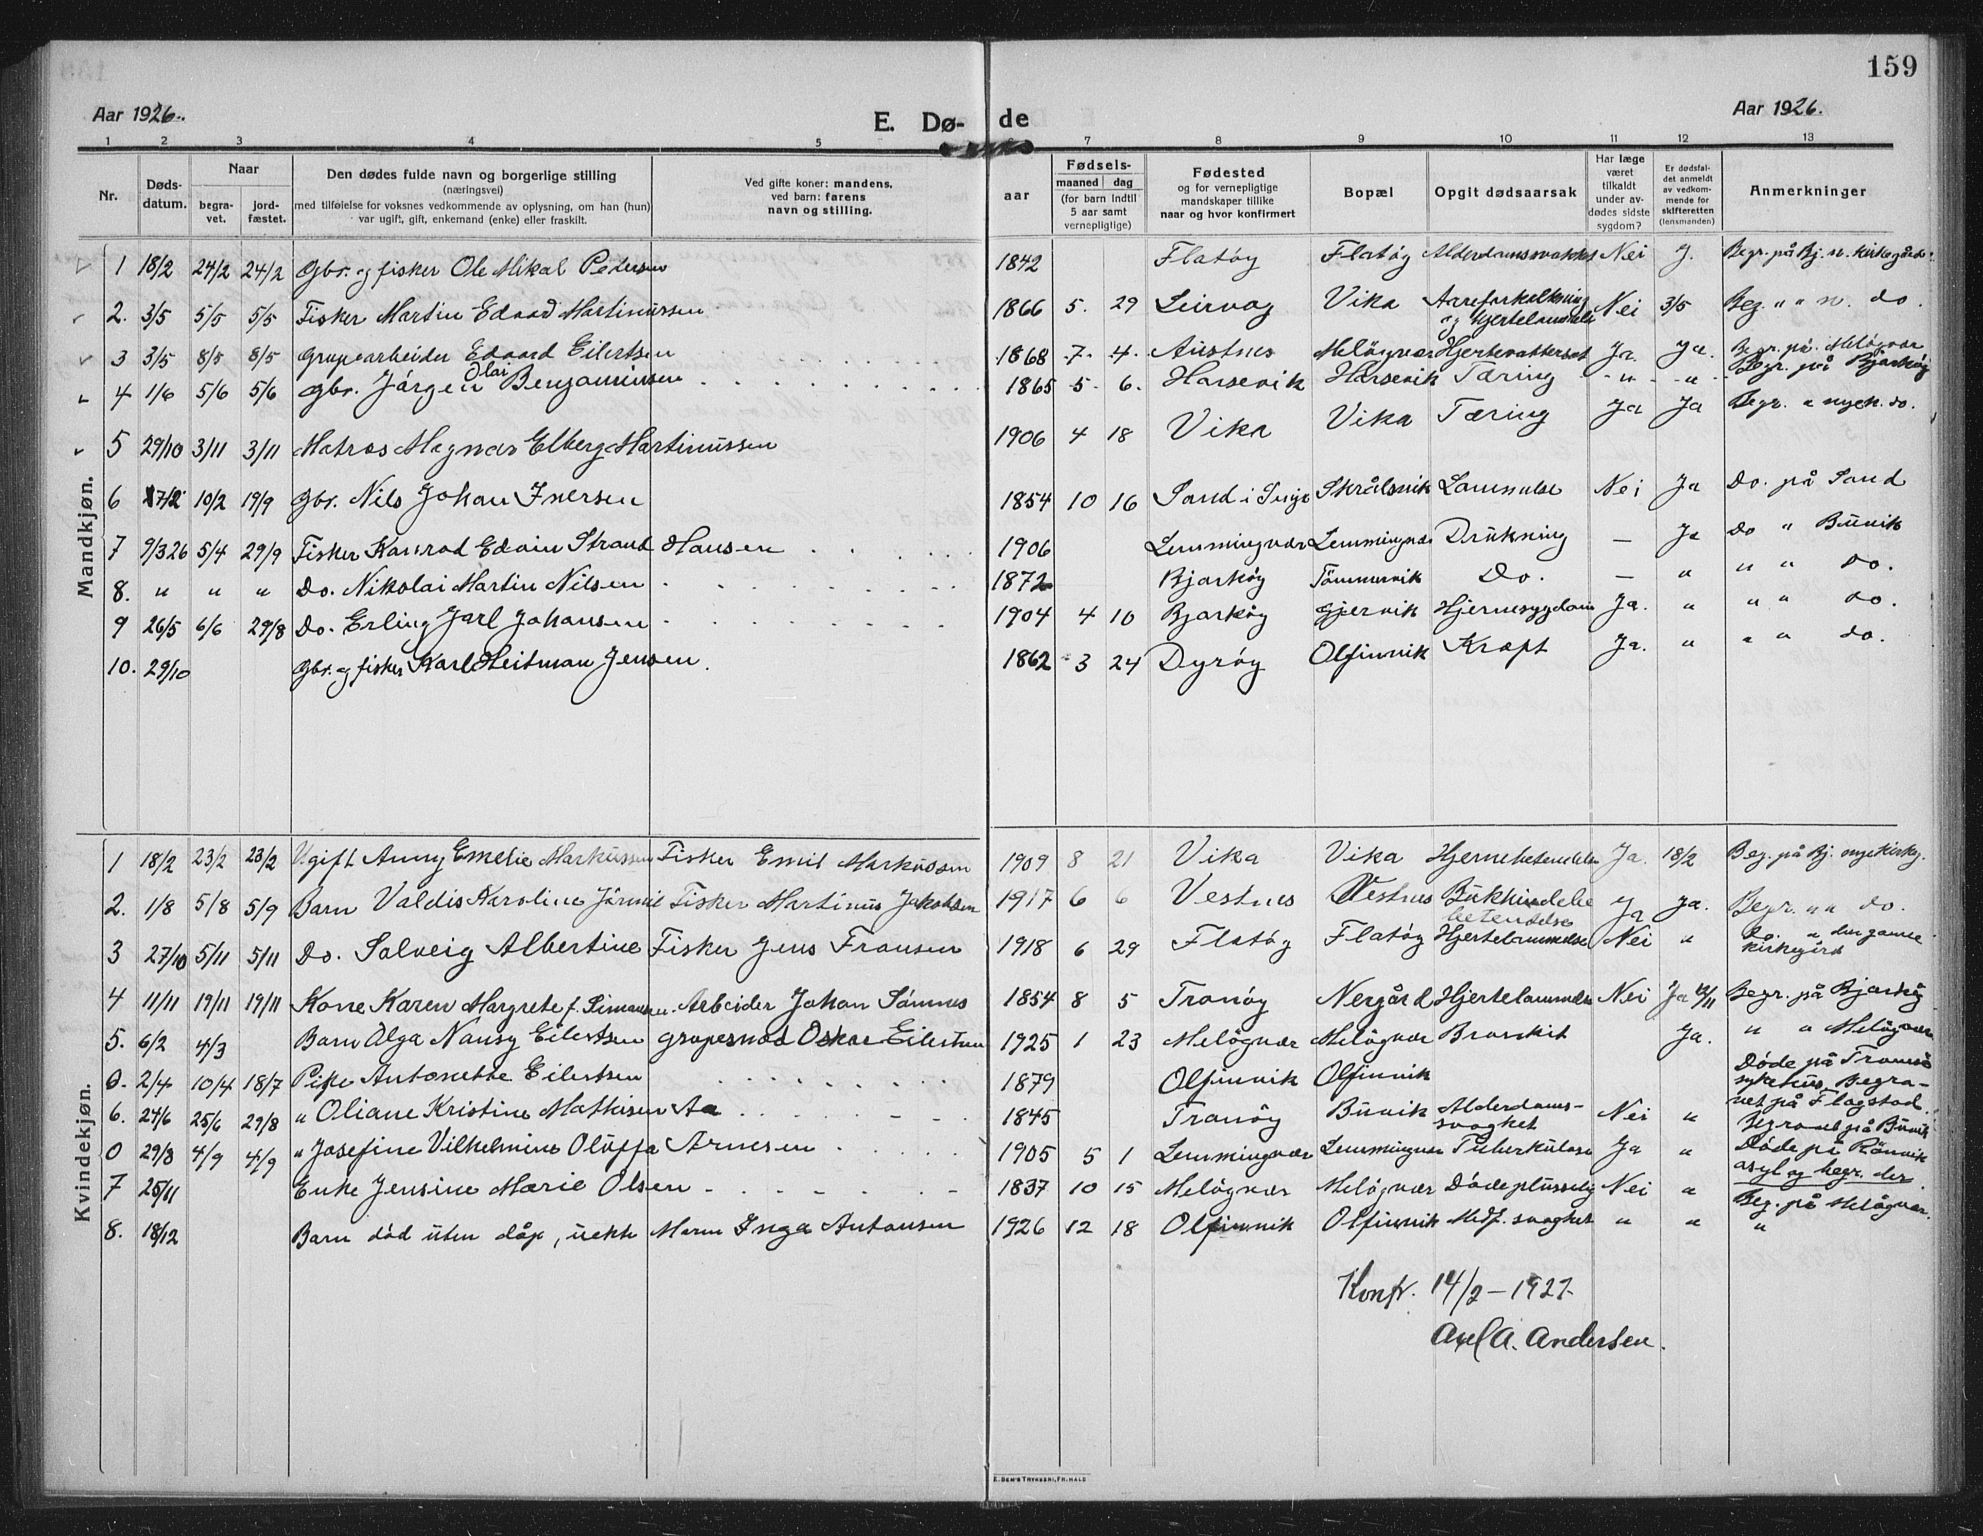 159
Aar 1926. E. Dø- de Aar 1926.
1 2 3 4 5 7 8 9 10 11 12 13
Nr. Døds-datum. Naar begra-vet. jord-fæstet. Den dødes fulde navn og borgerlige stilling (næringsvei) med tilføielse for voksnes vedkommende av oplysning, om han (hun) var ugift, gift, enkemand (enke) eller fraskilt. Ved gifte koner: mandens, ved barn: farens navn og stilling. aar Fødsels- maaned dag (for barn indtil 5 aar samt vernepligtige) Fødested og for vernepligtige mandskaper tillike naar og hvor konfirmert Bopæl Opgit dødsaarsak Har læge været tilkaldt under av-dødes sidste sygdom? Er dødsfal-det anmeldt av vedkom-mende for skifteretten (lensmanden) Anmerkninger
Mandkjøn.
1 18/2 24/2 24/2 Gbr. og fisker Ole Mikal Petersen 1842 Flatøy Flatøy Nei J. Begr. på Bj. n. kirkegård
2. 3/5 5/5 5/5 Fisker Martin Edvard Martinussen 1866 5. 29 Leirvag Vika Aareforkalkning og Hjertelammelse Nei 3/5 Beg. " " n. do.
3 3/5 8/5 8/5 Grupearbeider Edvard Eilertsen 1868 7. 4. Austnes Meløyvær Ja Ja. Begr. på Meløyvær
4 1/6 5/6 5/6 Gbr. Jørgen Olai Benjaminsen 1865 5. 6. Harsevik Harsevik Tæring - " - - " - Begr. på Bjarkøy
5 29/10 3/11 3/11 Matros Magnar Elberg Martinussen 1906 4 18 Vika Vika Tæring Ja Ja Begr. " nyek. do.
6 7/2 10/2 19/9 Gbr. Nils Johan Iversen 1854 10 16 Sand i Skrålsvik Lammelse Nei Ja Do. på Sand
7 9/3 26 5/4 29/9 Fisker Konrad Edvin Strand Hansen 1906 Lemmingvær Lemmingvær Drukning — Ja Do " Buvik
8. " " " Do. Nikolai Martin Nilsen 1872 Bjarkøy Tömmervik Do. — " " " Do.
9 26/5 6/6 29/8 Do. Erling Jarl Johansen 1904 4 10 Bjarkøy Gjervik Hjernesygdom Ja. " " " do.
10. 29/10 Gbr. og fisker Karl Heitman Jensen. 1862 3 24 Dyrøy Olfinvik Kræft Ja. " " " do.
Kvindekjøn.
1 18/2 23/2 23/2 Ugift Anny Emelie Markussen Fisker Emil Markussen 1909 8 21 Vika Vika Hjernebetendelse Ja. 18/2 Beg. på Bj. nyekirkeg.
2. 1/8 5/8 5/9 Barn Valdis Karoline Fisker Martinus Jakobsen 1917 6 6 Vestnes Vestnes Bukhindebetendelse Ja Ja. Begr. " " do.
3 27/10 5/11 5/11 Do. Solveig Albertine Fisker Jens Fransen 1918 6 29 Flatøy Flatøy Hjertelammelse Nei " Do. " den gamle kirkegård
4 11/11 19/11 19/11 Kone Karen Margrete f. Simonsen. Arbeider Johan Sömnes 1854 8 5 Tranöy Nergård Hjertelammelse Nei Ja Begr. på Bjarköy
5. 6/2 4/3 Barn Olga Nansy Eilertsen Oskar Eilertsen 1925 1 23 Meløyvær Meløyvær Ja. " " Meløyvær
0. 2/4 10/4 18/7 Pike Antonette Eilertsen 1879 Olfinvik Olfinvik Döde på Tromsö sykehus. Begravet på Flagstad
6. 24/6 25/6 29/8 " Oliane Kristine Mathisen Aa 1845 Tranöy Buvik Alderdomssvaghet Nei " Begravet på Buvik
0 29/8 4/9 4/9 " Josefine Vilhelmine Oluffa Arnesen 1905 5 1 Lemmingvær Lemmingvær Tuberkulose Ja " Döde på Rönvik asyl og begr. der.
7 25/11 Enke Jensine Marie Olsen 1837 10 15 Meløyvær Meløyvær Döde plusselig Nei " Beg. på Meløyvær.
8. 18/12 Barn död uten dåp, uekte Moren Inga Antonsen 1926 12 18 Olfinvik Olfinvik Medf. svaghet " " "
Konfr. 14/2 – 1927.
Axel A. Andersen.